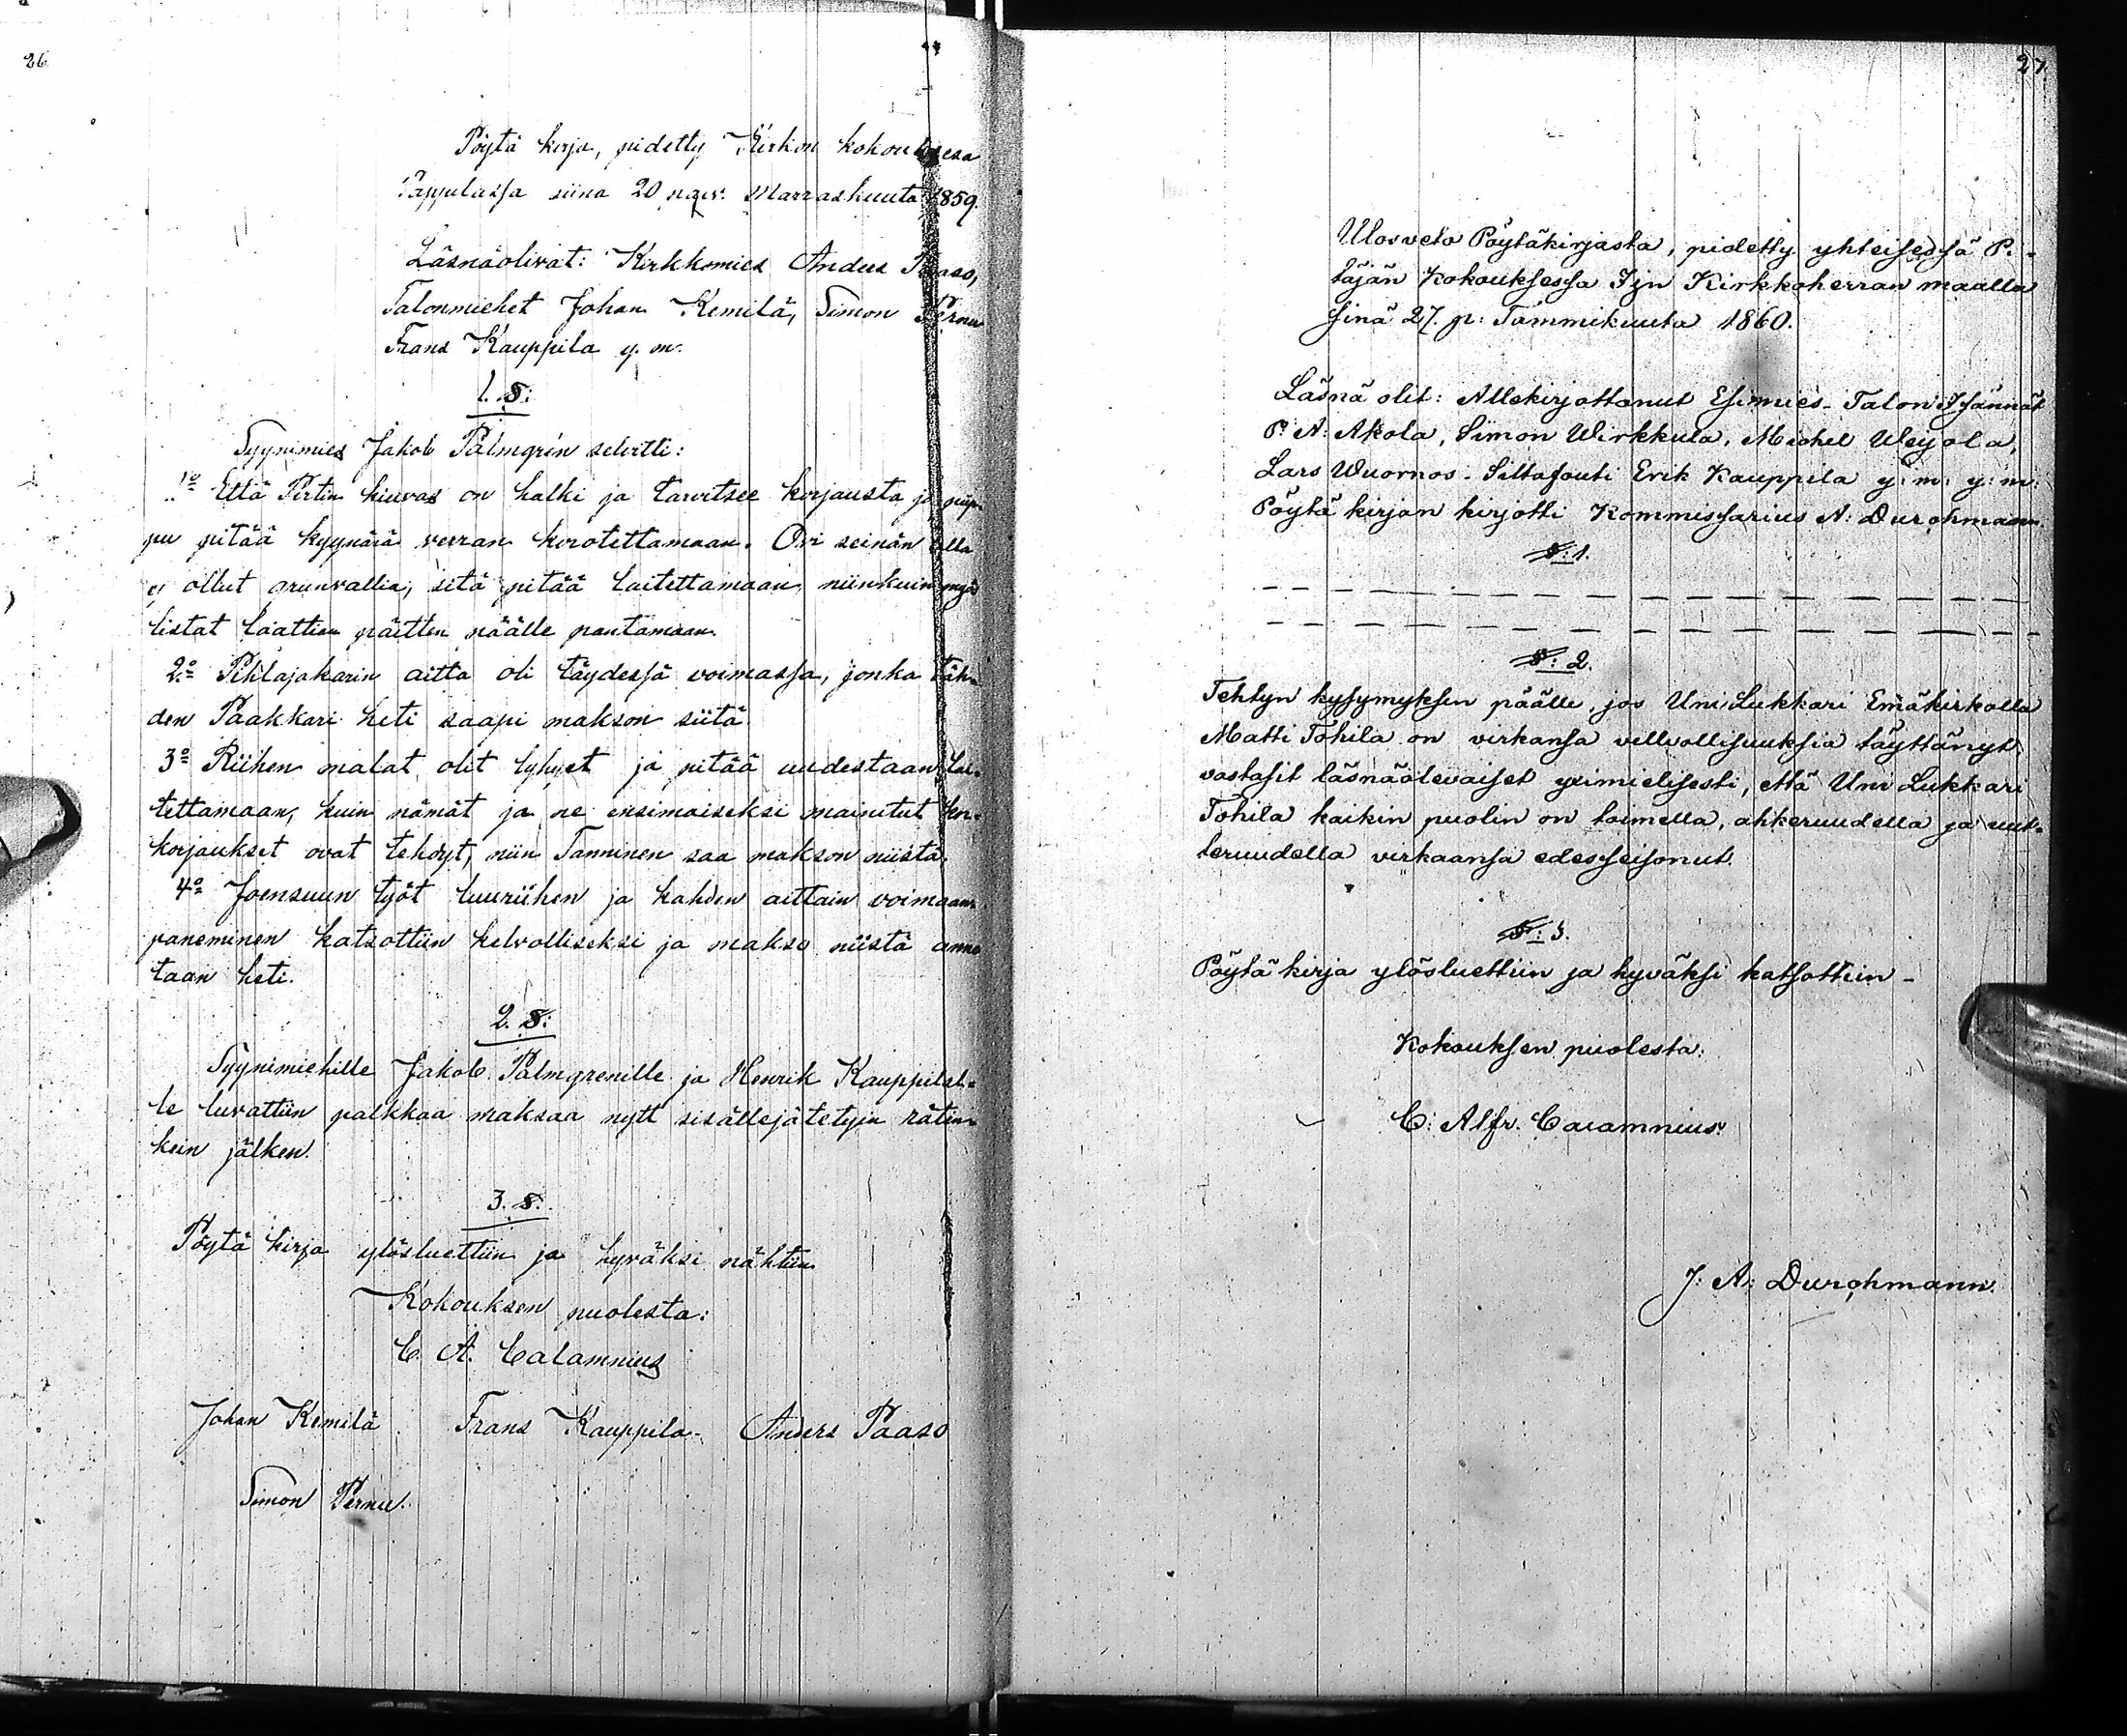 26.
Pöytä kirja, pidetty Kirkon kokouksesa
Pappilassa siina 20 päiv: Marraskuuta 1859.
Läsnäolivat: Kirkkomies Anders Paaso,
Talonmiehet Johan Kemilä, Simon Pernu
Frans Kauppila y. m.
1. §:
Syynimies Jakob Palmgrén selvitti:
1:o Että Pirtin kiuvas on halki ja tarvitsee korjausta, ja piip-
pu pitää kyynärä verran korotettamaan. Ovi seinän alla
ej ollut grunvallia, sitä pitää laitettamaan, niinkuin myös
listat laattian päitten päälle pantamaan.
2:o Pihlajakarin aitta oli täydessä voimassa, jonka täh-
den Paakkari heti saapi makson siitä.
3:o Riihen malat olit lyhyet ja pitää uudestaan lai-
tettamaan, kuin nämät ja ne ensimäiseksi mainitut
korjaukset ovat tehdyt, niin Tanninen saa makson niistä.
4:o Joensuun työt luuriihen ja kahden aittain voimaan
paneminen katsottiin kelvolliseksi ja makso niistä anne
taan heti.
2. §:
Syynimiehille Jakob Palmgrenille ja Henrik Kauppilal-
le luvattiin palkkaa maksaa nytt sisällejätetyin rätin-
kein jälken.
3. §.
Pöytä kirja ylösluettiin ja hyväksi nähtiin.
Kokouksen puolesta:
C. A. Calamnius
Johan Kemilä Frans Kauppila- Anders Paaso
Simon Pernu.
27.
Ulosveto Pöytäkirjasta, pidetty yhteisessä Pi-
täjän Kokouksessa Ijn Kirkkoherran maalla
sinä 27. p: Tammikuuta 1860.
Läsnä olit: Allekirjottanut Esimies- Talon Isännät
P: A: Akola, Simon Wirkkula, Michel Weijola,
Lars Wuornos- Siltafouti Erik Kauppila y: m: y: m:
Pöytä kirjan kirjotti Kommissarius A: Durchmann.
§: 1.
— — — — — — — — — — — — — — — —
— — — — — — — — — — — — — — — —
§: 2.
Tehtyn kysymyksen päälle, jos Uni Lukkari Emäkirkolla
Matti Tohila on virkansa velvollisuuksia täyttänyt
vastasit läsnäolevaiset yximielisesti, että Uni Lukkari
Tohila kaikin puolin on toimella, ahkeruudella ja uut-
teruudella virkaansa edesseisonut.
§: 3.
Pöytä kirja ylösluettiin ja hyväksi katsottiin-
Kokouksen puolesta:
C: Alfr. Calamnius.
J: A: Durchmann.